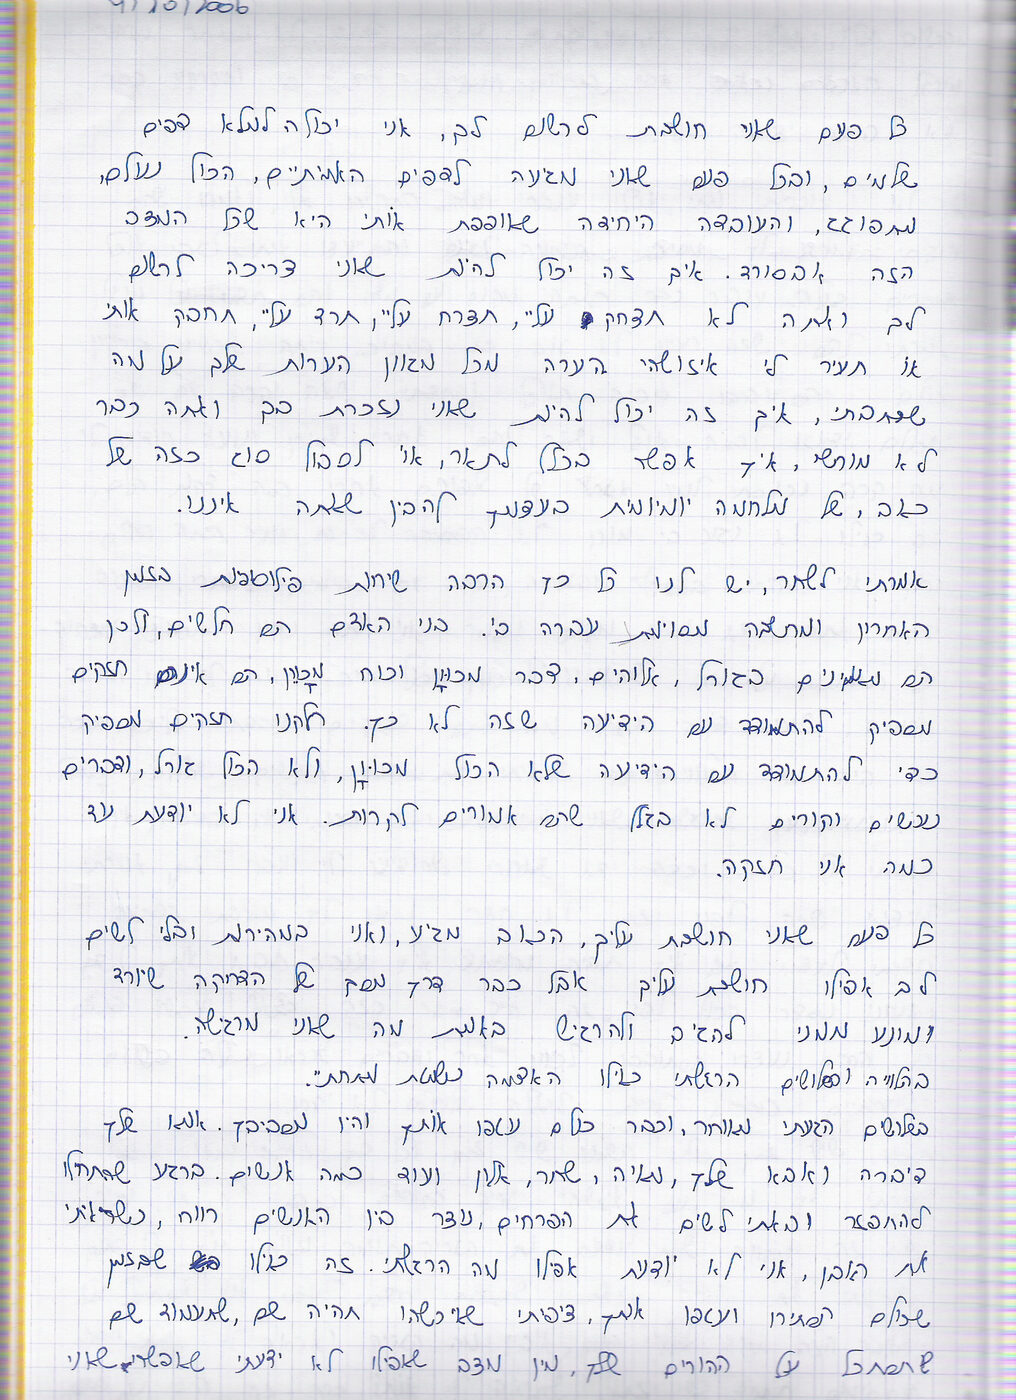 4/10/2006
כל פעם שאני חושבת לרשום לך, אני יכולה למלא דפים
שלמים, ובכל פעם שאני מגיעה לדפים האמיתיים, הכול נעלם,
מתפוגג, והעובדה היחידה שאופפת אותי היא שכל המצב
הזה אבסורד. איך זה יכול להיות שאני צריכה לרשום
לך ואתה לא תצחק עליי, תצרח עליי, תרד עליי, תחבק אותי
או תעיר לי איזושהי הערה מכל מגוון הערות שלך על מה
שכתבתי, איך זה יכול להיות שאני נזכרת בך ואתה כבר
לא מוחשי, איך אפשר בכלל לתאר, או לסבול סוג כזה של
כאב, של מלחמה יומיומית בעצמך להבין שאתה איננו.
אמרתי לשחר, יש לנו כל כך הרבה שיחות פילוסופיות בזמן
האחרון ומחשבה מסוימת עברה בי. בני האדם הם חלשים, ולכן
הם מאמינים בגורל, אלוהים, דבר מכוון וכוח מכוון, הם אינם חזקים
מספיק להתמודד עם הידיעה שזה לא כך. חלקנו חזקים מספיק
כדי להתמודד עם הידיעה שלא הכול מכוון, ולא הכול גורל, ודברים
נעשים וקורים לא בגלל שהם אמורים לקרות. אני לא יודעת עד
כמה אני חזקה.
כל פעם שאני חושבת עליך, הכאב מגיע, ואני במהירות ובלי לשים
לב אפילו חושבת עליך אבל כבר דרך מסך של הדחקה שיורד
ומונע ממני להגיב ולהרגיש באמת מה שאני מרגישה.
בהלוויה ובשלושים הרגשתי כאילו האדמה נשמטת מתחתיי.
בשלושים הגעתי מאוחר, וכבר כולם עטפו אותך והיו מסביבך. אמא שלך
דיברה ואבא שלך, מאיה, שחר, אלון ועוד כמה אנשים. ברגע שהתחילו
להתפזר ובאתי לשים את הפרחים, נוצר בין האנשים רווח, כשראיתי
את האבן, אני לא יודעת אפילו מה הרגשתי. זה כאילו שבזמן
שכולם הסתירו ועטפו אותך, ציפיתי שאיכשהו תהיה שם, שתעמוד שם
שתסתכל על ההורים שלך, מין מצב שאפילו לא ידעתי שאפשרי שאני